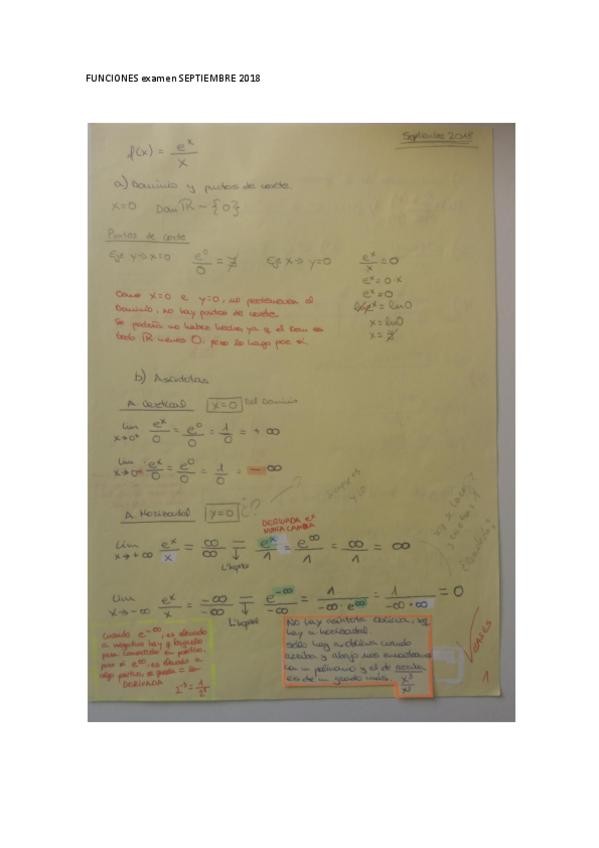 FUNCIONES examen SEPTIEMBRE 2018
Septiembre 2018
f(x) = e^x / x
a) Dominio y puntos de corte.
x=0 Dom ℝ ~ {0}
Puntos de corte
Eje y → x=0 e^0/0 = ∄ Eje x → y=0 e^x/x = 0
e^x = 0·x
e^x = 0
x = ln 0
x = ∄
Como x=0 e y=0, no pertenecen al
Dominio, no hay puntos de corte.
Se podría no haber hecho, ya q el Dom es
todo ℝ menos 0, pero lo hago por si.
b) Asíntotas
A. Vertical x=0 Del Dominio
lim x→0+ e^x/0 = e^0/0 = 1/0 = +∞
lim x→0- e^x/0 = e^0/0 = 1/0 = -∞
A. Horizontal y=0 ¿?
DERIVADA e^x
NUNCA CAMBIA
lim x→+∞ e^x/x = ∞/∞ = e^x/1 = e^∞/1 = ∞/1 = ∞
L'hopital
lim x→-∞ e^x/x = -∞/∞ = e^-∞/-∞ = 1/-∞·e^∞ = 1/-∞·∞ = 0
L'hopital
cuando e^-∞, es elevado
a negativo hay q bajarlo
para convertirlo en positivo,
pero si e^∞, es elevado a
algo positivo, se queda =
DERIVADA
2^-3 = 1/2^3
No hay asíntota oblicua, xq
hay A. horizontal.
Sólo hay A. oblicua cuando
arriba y abajo nos encontramos
un polinomio y el de arriba
es de un grado más. x^3/x^2
Venes
1